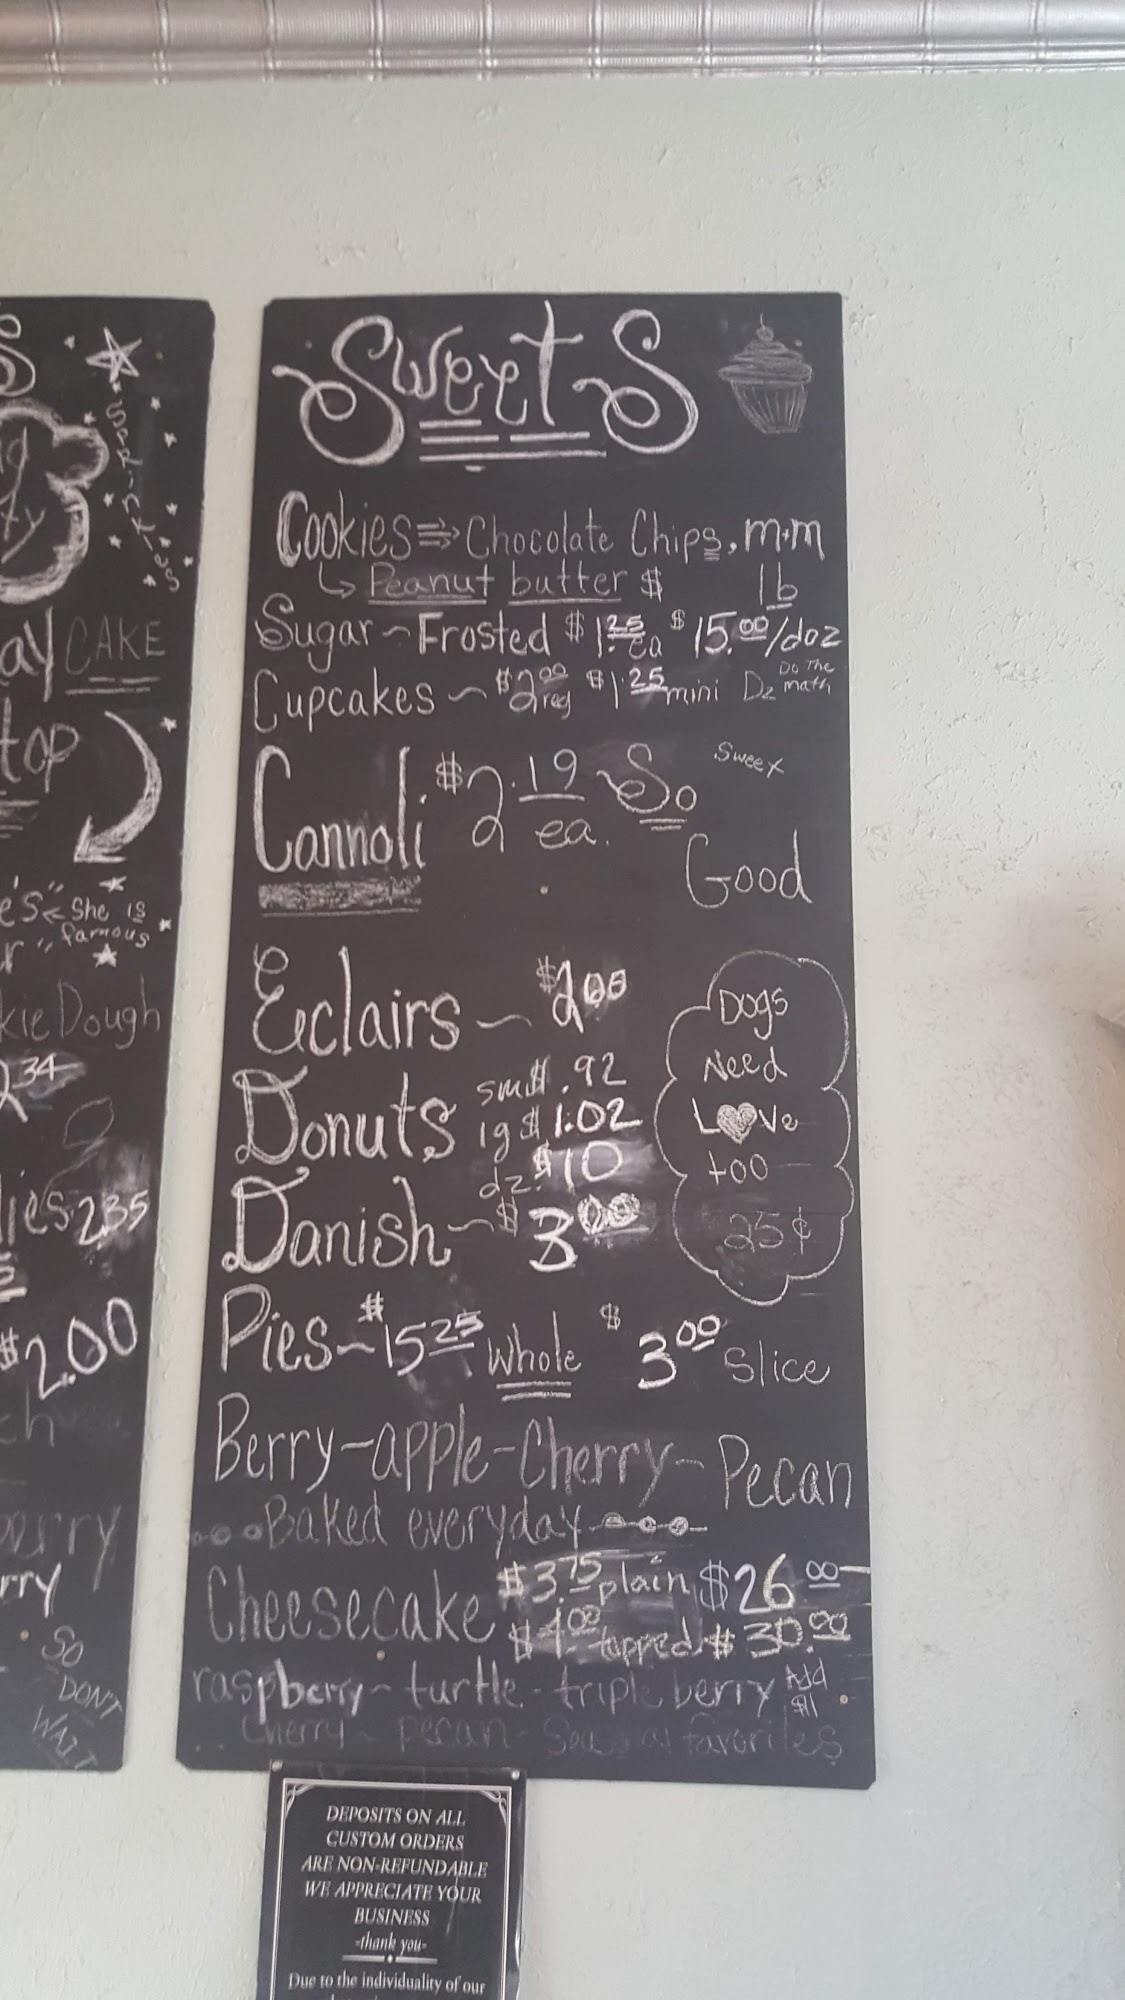 Sweets
Cookies ⇒ Chocolate Chips, m+m
↳ Peanut butter $ lb
Sugar ~ Frosted $1.25 ea $15.00/doz
Cupcakes ~ $2.00 reg $1.25 mini Dz Do The math
Cannoli $2.19 ea. So Sweet Good
Eclairs ~ $2.00
Donuts sm $.92
lg $1.02
dz. $10
Danish ~ $3.00
Dogs
Need
Love
too
25¢
Pies ~ $15.25 Whole $3.00 Slice
Berry - apple - Cherry - Pecan
Baked everyday
Cheesecake $3.75 plain $26.00
$4.00 topped $30.00
raspberry ~ turtle - triple berry Add $1
Cherry ~ pecan - favorites
DEPOSITS ON ALL
CUSTOM ORDERS
ARE NON-REFUNDABLE
WE APPRECIATE YOUR
BUSINESS
-thank you-
Due to the individuality of our
CAKE
top
e's" < She is
famous
kie Dough
2.34
lies 2.35
$2.00
rry
SO
DONT
WAIT